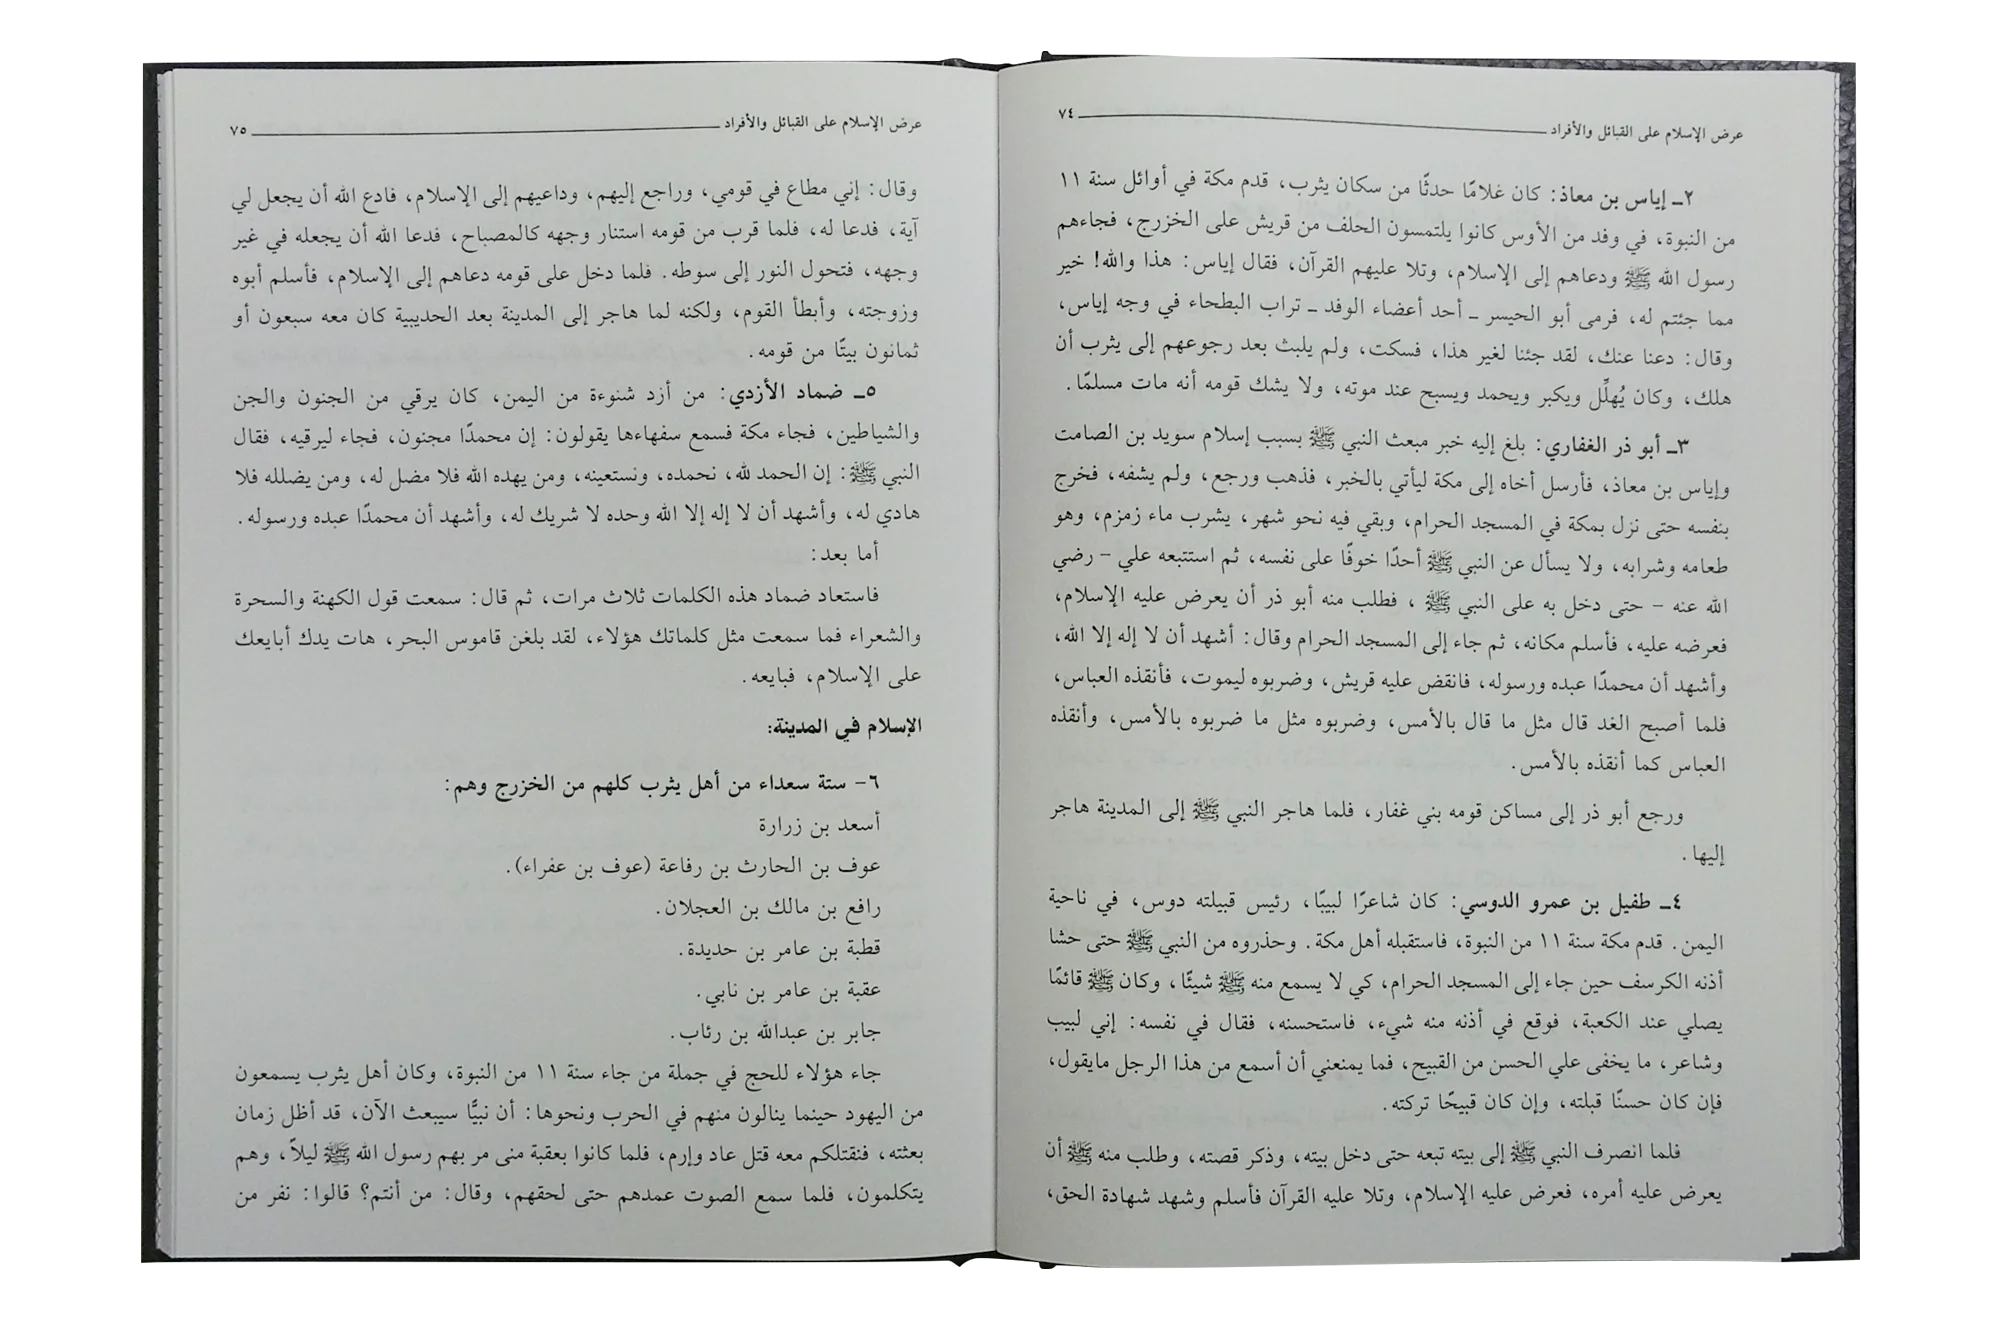 عرض الإسلام على القبائل والأفراد ٧٤
٢ـ إياس بن معاذ: كان غلامًا حدثًا من سكان يثرب، قدم مكة في أوائل سنة ١١
من النبوة، في وفد من الأوس كانوا يلتمسون الحلف من قريش على الخزرج، فجاءهم
رسول الله ﷺ ودعاهم إلى الإسلام، وتلا عليهم القرآن، فقال إياس: هذا والله! خير
مما جئتم له، فرمى أبو الحيسر ـ أحد أعضاء الوفد ـ تراب البطحاء في وجه إياس،
وقال: دعنا عنك، لقد جئنا لغير هذا، فسكت، ولم يلبث بعد رجوعهم إلى يثرب أن
هلك، وكان يُهلِّل ويكبر ويحمد ويسبح عند موته، ولا يشك قومه أنه مات مسلمًا.
٣ـ أبو ذر الغفاري: بلغ إليه خبر مبعث النبي ﷺ بسبب إسلام سويد بن الصامت
وإياس بن معاذ، فأرسل أخاه إلى مكة ليأتي بالخبر، فذهب ورجع، ولم يشفه، فخرج
بنفسه حتى نزل بمكة في المسجد الحرام، وبقي فيه نحو شهر، يشرب ماء زمزم، وهو
طعامه وشرابه، ولا يسأل عن النبي ﷺ أحدًا خوفًا على نفسه، ثم استتبعه علي - رضي
الله عنه - حتى دخل به على النبي ﷺ ، فطلب منه أبو ذر أن يعرض عليه الإسلام،
فعرضه عليه، فأسلم مكانه، ثم جاء إلى المسجد الحرام وقال: أشهد أن لا إله إلا الله،
وأشهد أن محمدًا عبده ورسوله، فانقض عليه قريش، وضربوه ليموت، فأنقذه العباس،
فلما أصبح الغد قال مثل ما قال بالأمس، وضربوه مثل ما ضربوه بالأمس، وأنقذه
العباس كما أنقذه بالأمس.
ورجع أبو ذر إلى مساكن قومه بني غفار، فلما هاجر النبي ﷺ إلى المدينة هاجر
إليها.
٤ـ طفيل بن عمرو الدوسي: كان شاعرًا لبيبًا، رئيس قبيلته دوس، في ناحية
اليمن. قدم مكة سنة ١١ من النبوة، فاستقبله أهل مكة. وحذروه من النبي ﷺ حتى حشا
أذنه الكرسف حين جاء إلى المسجد الحرام، كي لا يسمع منه ﷺ شيئًا، وكان ﷺ قائمًا
يصلي عند الكعبة، فوقع في أذنه منه شيء، فاستحسنه، فقال في نفسه: إني لبيب
وشاعر، ما يخفى علي الحسن من القبيح، فما يمنعني أن أسمع من هذا الرجل مايقول،
فإن كان حسنًا قبلته، وإن كان قبيحًا تركته.
فلما انصرف النبي ﷺ إلى بيته تبعه حتى دخل بيته، وذكر قصته، وطلب منه ﷺ أن
يعرض عليه أمره، فعرض عليه الإسلام، وتلا عليه القرآن فأسلم وشهد شهادة الحق،
عرض الإسلام على القبائل والأفراد ٧٥
وقال: إني مطاع في قومي، وراجع إليهم، وداعيهم إلى الإسلام، فادع الله أن يجعل لي
آية، فدعا له، فلما قرب من قومه استنار وجهه كالمصباح، فدعا الله أن يجعله في غير
وجهه، فتحول النور إلى سوطه. فلما دخل على قومه دعاهم إلى الإسلام، فأسلم أبوه
وزوجته، وأبطأ القوم، ولكنه لما هاجر إلى المدينة بعد الحديبية كان معه سبعون أو
ثمانون بيتًا من قومه.
٥ـ ضماد الأزدي: من أزد شنوءة من اليمن، كان يرقي من الجنون والجن
والشياطين، فجاء مكة فسمع سفهاءها يقولون: إن محمدًا مجنون، فجاء ليرقيه، فقال
النبي ﷺ: إن الحمد لله، نحمده، ونستعينه، ومن يهده الله فلا مضل له، ومن يضلله فلا
هادي له، وأشهد أن لا إله إلا الله وحده لا شريك له، وأشهد أن محمدًا عبده ورسوله.
أما بعد:
فاستعاد ضماد هذه الكلمات ثلاث مرات، ثم قال: سمعت قول الكهنة والسحرة
والشعراء فما سمعت مثل كلماتك هؤلاء، لقد بلغن قاموس البحر، هات يدك أبايعك
على الإسلام، فبايعه.
الإسلام في المدينة:
٦- ستة سعداء من أهل يثرب كلهم من الخزرج وهم:
أسعد بن زرارة
عوف بن الحارث بن رفاعة (عوف بن عفراء).
رافع بن مالك بن العجلان.
قطبة بن عامر بن حديدة.
عقبة بن عامر بن نابي.
جابر بن عبدالله بن رئاب.
جاء هؤلاء للحج في جملة من جاء سنة ١١ من النبوة، وكان أهل يثرب يسمعون
من اليهود حينما ينالون منهم في الحرب ونحوها: أن نبيًّا سيبعث الآن، قد أظل زمان
بعثته، فنقتلكم معه قتل عاد وإرم، فلما كانوا بعقبة منى مر بهم رسول الله ﷺ ليلاً، وهم
يتكلمون، فلما سمع الصوت عمدهم حتى لحقهم، وقال: من أنتم؟ قالوا: نفر من